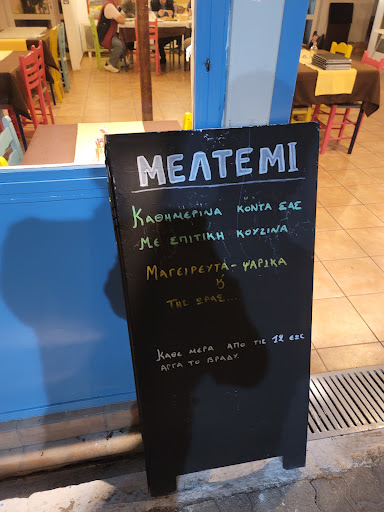 ΜΕΛΤΕΜΙ
ΚΑΘΗΜΕΡΙΝΑ ΚΟΝΤΑ ΣΑΣ
ΜΕ ΣΠΙΤΙΚΗ ΚΟΥΖΙΝΑ
ΜΑΓΕΙΡΕΥΤΑ - ΨΑΡΙΚΑ
ή
ΤΗΣ ΩΡΑΣ...
ΚΑΘΕ ΜΕΡΑ ΑΠΟ ΤΙΣ 12 ΕΩΣ
ΑΡΓΑ ΤΟ ΒΡΑΔΥ.